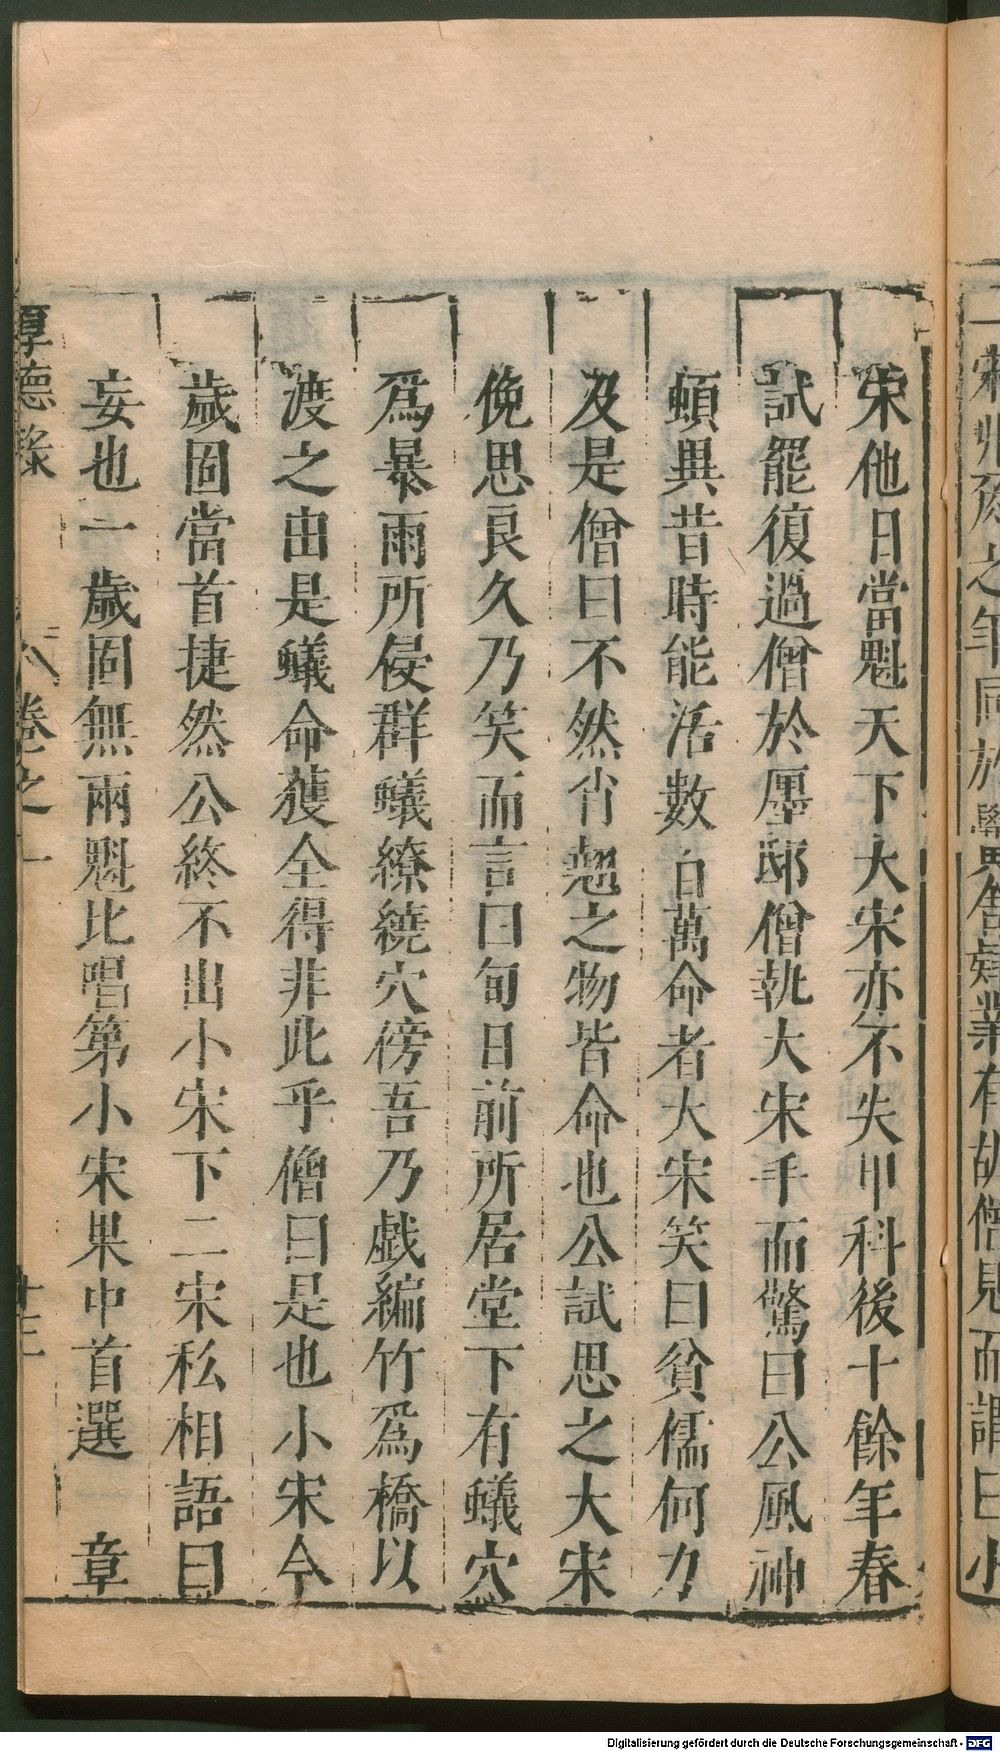 二宋
之年同於
業有胡僧見而謂曰小
宋他日當魁天下大宋亦不失甲科後十餘年春
試罷復過僧於廛邸僧執大宋手而驚曰公風神
頓異昔時能活數百萬命者大宋笑曰貧儒何力
及是僧曰不然肖翹之物皆命也公試思之大宋
俛思良久乃笑而言曰旬日前所居堂下有蟻穴
爲暴雨所侵群蟻繚繞穴傍吾乃戲編竹爲橋以
渡之由是蟻命獲全得非此乎僧曰是也小宋今
歲固當首捷然公終不出小宋下二宋私相語曰
妄也一歲固無兩魁比唱第小宋果中首選　章
厚德錄　卷之一　十三
Digitalisierung gefördert durch die Deutsche Forschungsgemeinschaft - DFG